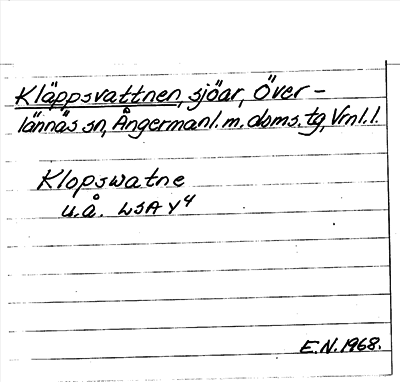 Kläppsvattnen, sjöar, Över-
lännäs sn, Ångermanl. m. doms. tg, Vrnl. l.
Klopswatne
u.å. LSA Y4
E.N. 1968.